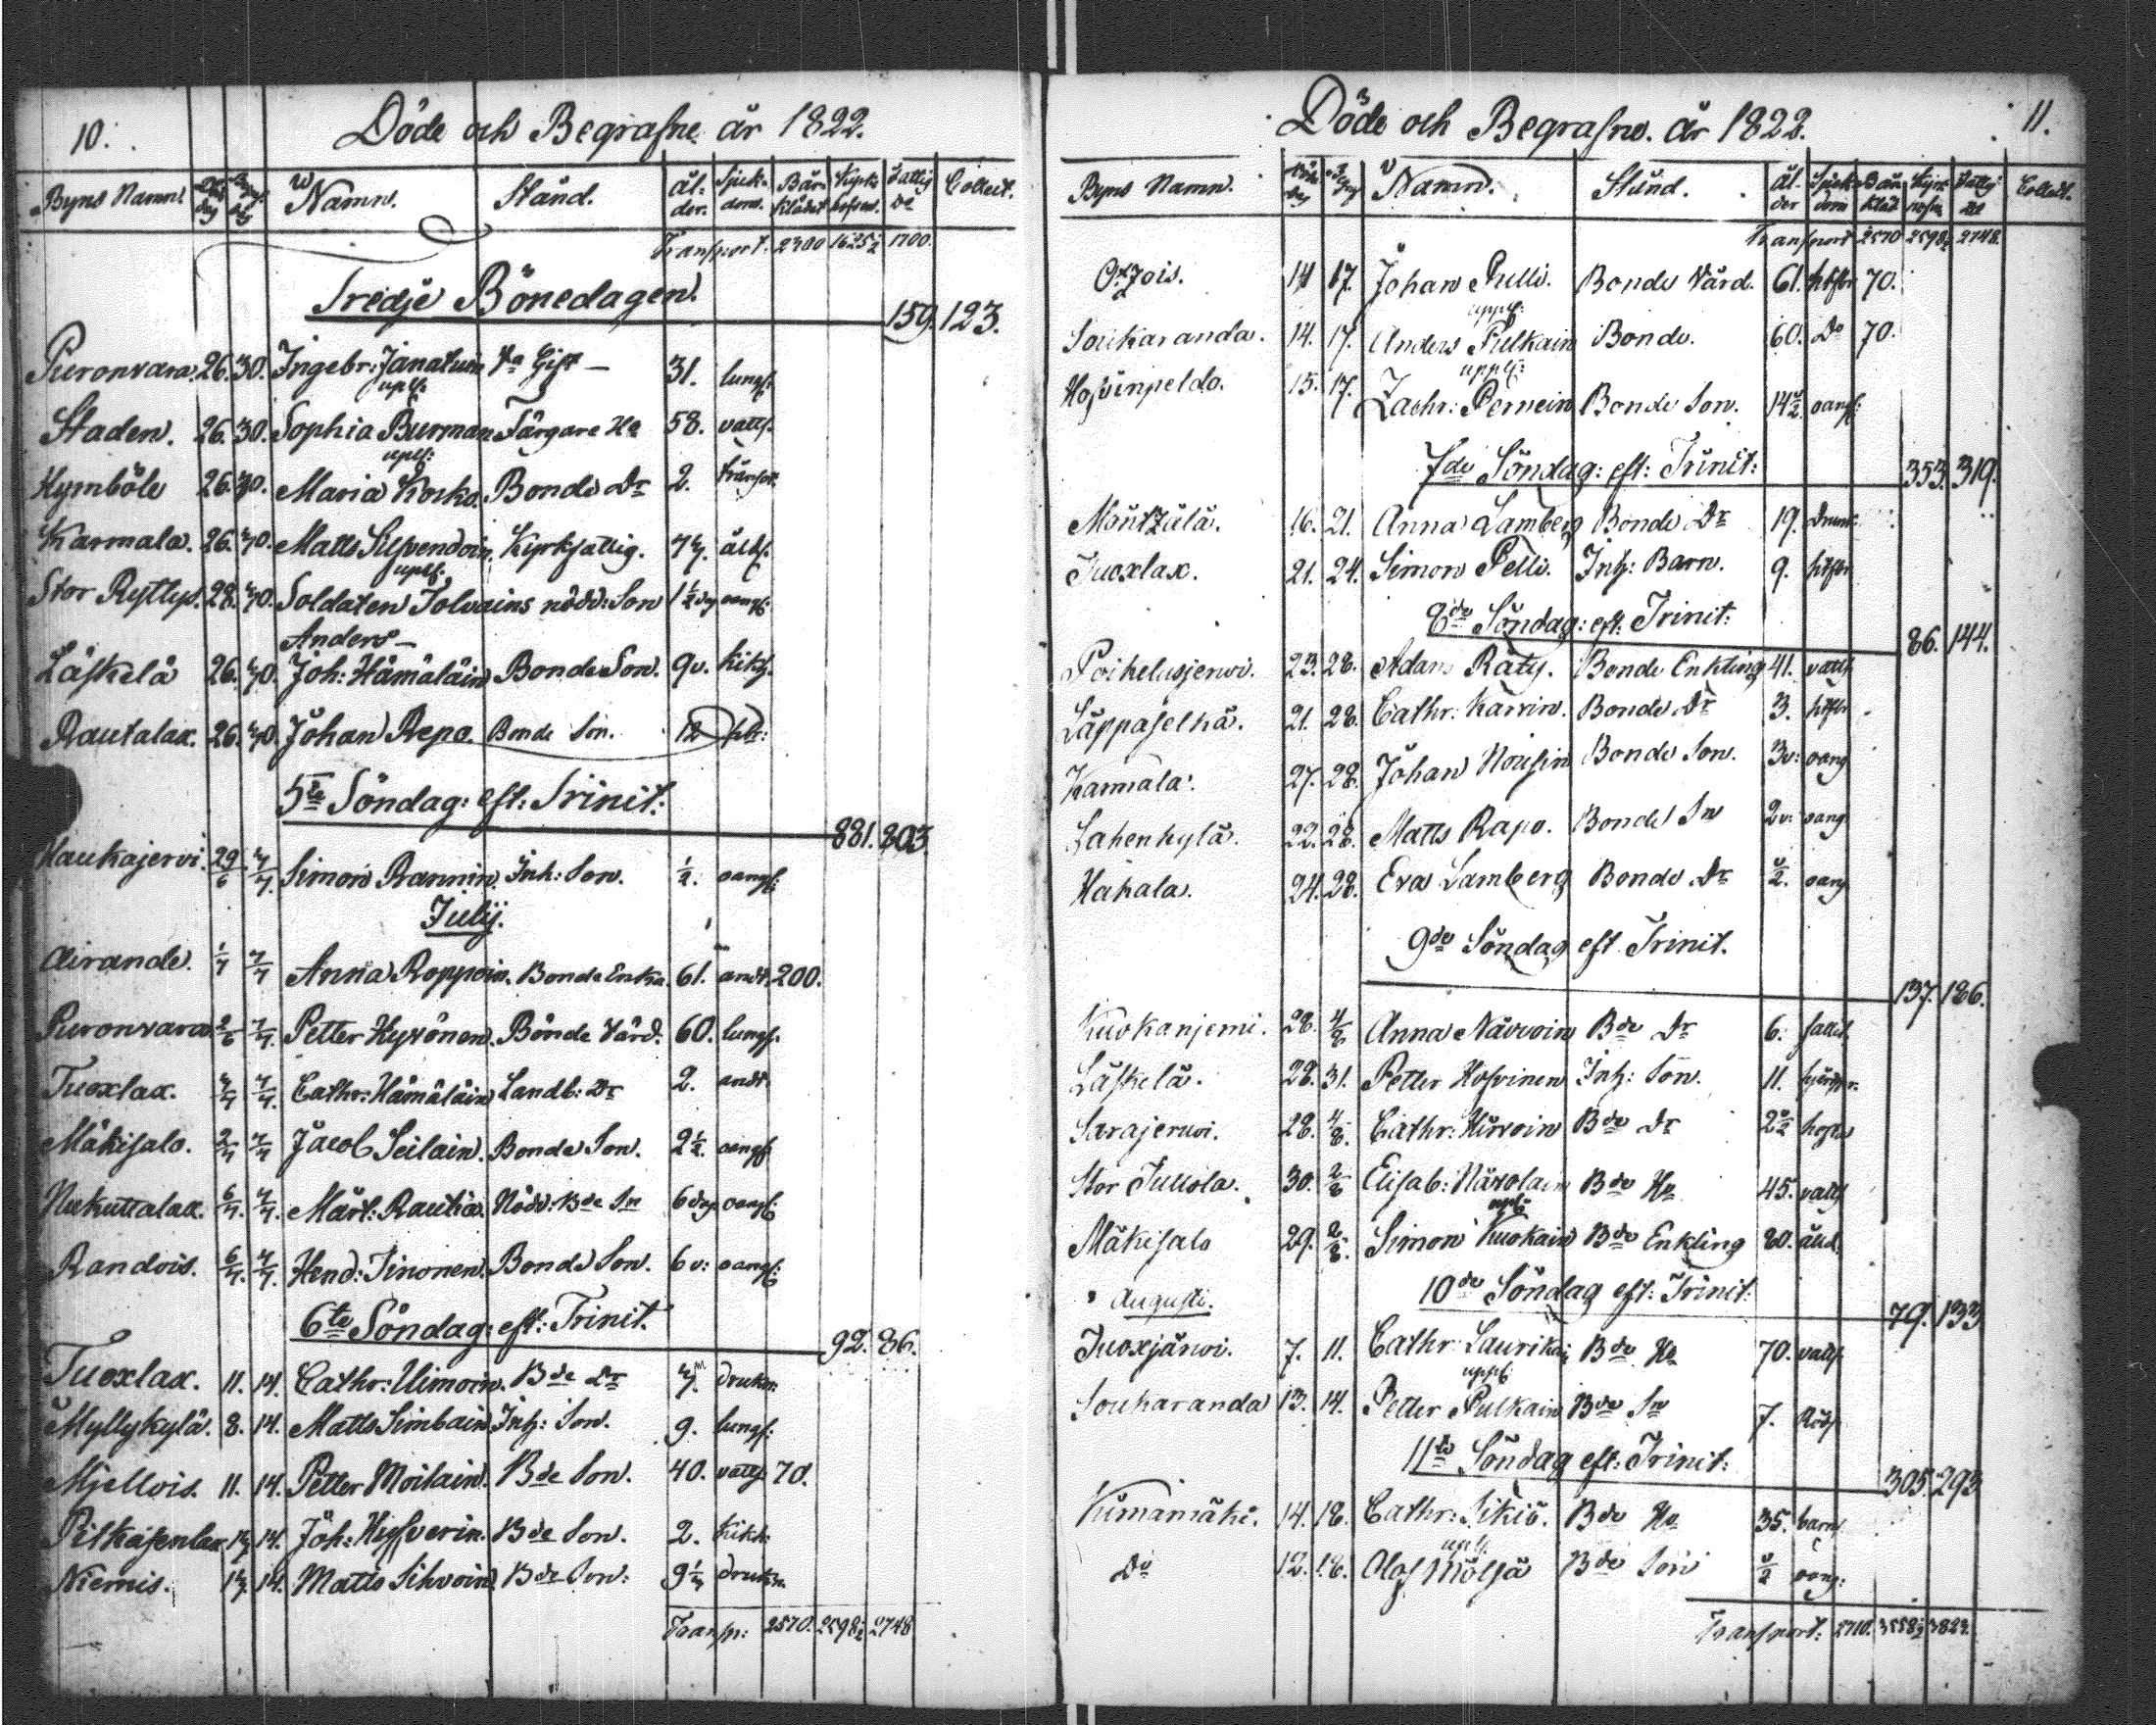 10.
Döde och Begrafne år 1822.
Byns Namn. Död dag Begr. dag Namn. Stånd. Ålder. Sjukdom. Bårklädet Kyrkokassan. Fattig Do Collect.
Transport. 2300 1625½ 1700.
Tredje Bönedagen.
159. 123.
Puronvara. 26. 30. Ingebr: Janatuin Gift 31. lungs:
Staden. 26. 30. Sophia Burman Färgare Ha 58. vatts.
uplf:
Kymböle 26. 30. Maria Korko. Bonde Dr 2.
Karmala. 26. 30. Matts Silvendoin. Kyrkfattig. 77. åld.
uplf.
Stor Rytlys. 28. 30. Soldaten Tolvains nödd: Son 1½ dag oangf:
Anders
Läskelä 26. 30. Joh: Hämäläin Bonde Son. 9v. kikh.
Rautalax. 26. 30. Johan Repo. Bonde Son. 12
5te Söndag: eft: Trinit:
881. 803.
Haukajervi. 29/6 7/7. Simon Rannin. Inh: Son. ½. oangf:
Julij.
Airande. 1/7 7/7 Anna Roppoin. Bonde Enka. 61. andt. 200.
Puronvara 2/6 7/7. Petter Hyvönen. Bonde Värd. 60. lungs.
Tuoxlax. 4/7 7/7. Cathr: Hämäläin Landb: Dr 2. andt.
Mäkisalo. 2/7 7/7 Jacob Seilain. Bonde Son. 2½. oangf
Nukuttalax. 6/7. 7/7. Märt: Rautia. Nödd: Bde Sn 6 dag oangf:
Randois. 6/7. 7/7. Hend: Iinonen. Bonde Son. 6 v: oangf:
6te Söndag: eft: Trinit.
92. 86.
Tuoxlax. 11. 14. Cathr: Uimoin. Bde Dr 7. drukn.
Myllykylä. 8. 14. Matts Simbain Inh: Son. 9. lungs:
Mjellois. 11. 14. Petter Moilain. Bde Son. 40. vatts 70.
Pitkäsenlax 14. Joh: Hyfverin. Bde Son. 2. Kikh:
Niemis. 14. Matts Sihvoin. Bde Son: drukn.
Transp: 2570. 2598½ 2748
11.
Döde och Begrafne. år 1822.
Byns Namn. Namn. Stånd. Ålder Sjukdom Bårkläd Collect.
Transport 2570 2598½ 2748.
Otsois. 14 17. Johan Pulli. Bonde Värd. 61. hitsfbr 70.
uppl:
Soukaranda. 14. 17. Anders Pulkain Bonde. 60. Do 70.
uppl:
Hofvinpeldo. 15. 17. Zachr: Pernein Bonde Son. oangf:
7de Söndag: eft: Trinit:
353. 319.
Möntzälä. 16. 21. Anna Lamberg Bonde Dr 19. Drunk:
Tuoxlax. 21. 24. Simon Pelli. Inh: Barn. 9. hitsfbr
8de Söndag: eft: Trinit:
86. 144.
Poikelusjerwi. 23. 28. Adam Räty. Bonde Enkling 41. vatts
Läppäselkä. 21. 28. Cathr: Karvin. Bonde Dr 3. hitsfbr
Karmala: 27. 28. Johan Nousin Bonde Son. 3v: oang
Lahenkylä. 22. 28. Matts Rapo. Bonde Sn 2v: oang
Hakala. 24. 28. Eva Lamberg Bonde Dr oang
9de Söndag eft Trinit.
137. 186.
Kuokanjemi. 28. 4/8 Anna Närvoin Bde Dr 6.
Läskelä. 28. 31. Petter Hofvinen Inh: Son. 11.
Sarajerwi. 28. 4/8. Cathr: Hirvoin Bde Dr hosta
Stor Jullola. 30. 2/8 Elisab: Närvolain Bde Hu 45. vatts
uplf
Mäkisalo 29. 2/8. Simon Kuokain Bde Enkling 80. åld.
10de Söndag eft: Trinit:
Augusti.
79. 133
Tuoxjärwi. 7. 11. Cathr: Laurikai Bde Ha 70. vatts.
uppl
Soukaranda 13. 14. Petter Pulkain Bde Sn 7. Röds
11te Söndag eft: Trinit:
305. 293
Kumamäki. 14. 18. Cathr: Sikiö. Bde Hu 35. barns
upl:
Do 12. 18. Olof Mölsä Bde Son oang:
Transport: 2710. 3558½ 3823.